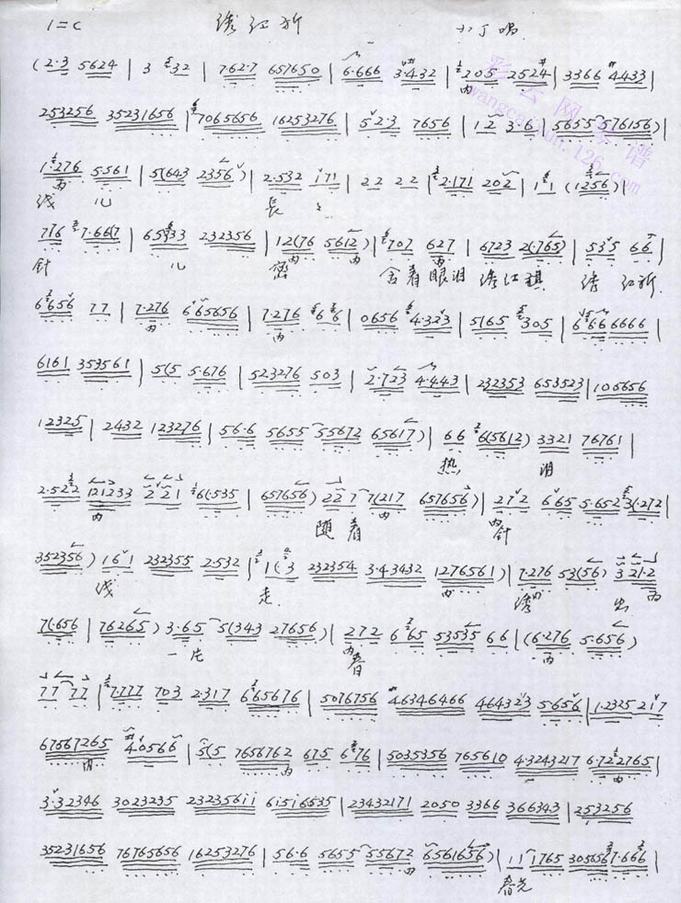 1=C 绣红旗 小丁唱
(2·3 5624 | 3 32 | 7·62·7 657650 | 6·666 3·4·32 | 205 2524 | 3366 4433 |
253256 35231656 | 7065656 16253276 | 52·3 7656 | 12 3·6 | 5655 576156) |
1·276 5·561 | 5(643 2356) | 2·532 171 | 22 22 | 2·171 202 | 11 (1256) |
线 儿 长
776 7·667 | 65333 232356 | 12(76 5612) | 707 627 | 6723 2(·765) | 535 66 |
针 儿 密 含着眼泪 绣红旗 绣 红旗
6656 77 | 7·276 665656 | 7·276 66 | 0656 4·323 | 5165 305 | 666 6666 |
6161 353561 | 515 5·676 | 523276 503 | 2·723 4·443 | 232353 653523 | 100656
12325 | 2432 123276 | 56·6 5655 55672 65617) | 66 6(5612) 3321 76761 |
热 泪
2·522 121233 2221 6(·535 | 657656) 227 7(217 657656) | 272 665 5·652 3(·272 |
随 着 针
352356) 161 232355 2·532 | 1(3 232354 3·43432 1276561) | 7·276 53(56) 321·2
线 走 绣 出
7(·656 | 76265) 3·65 5(343 27656) | 272 665 53535 66 | (6·276 5·656)
一片 春
77 77 | 7·777 703 2·317 665676 | 5076756 46346466 464323 5·656 | 1·2325 217
67567265 40566 | 515 7656762 675 676 | 5035356 765610 43243217 6·722765 |
3·32346 3023235 23235611 61516535 | 23432171 2050 3366 366343 | 253256
35231656 76765656 16253276 | 56·6 5655 55672 6561656) | 11 1765 305656 7·666 |
春光